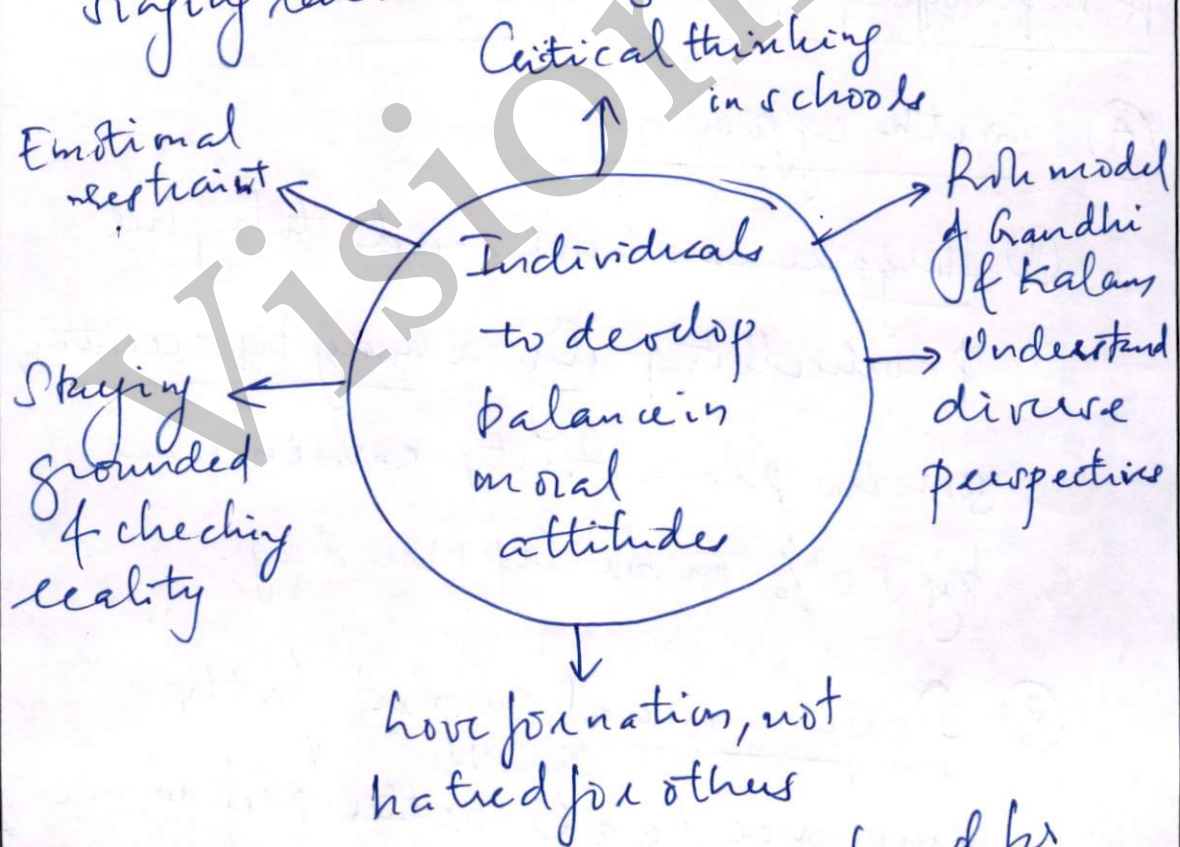 staying
Critical thinking
in schools
Emotional
restraint
Role model
of Gandhi
& Kalam
Individuals
to develop
balance in
moral
attitudes
Understand
diverse
perspectives
Staying
grounded
& checking
reality
Love for nation, not
hatred for others
Vision